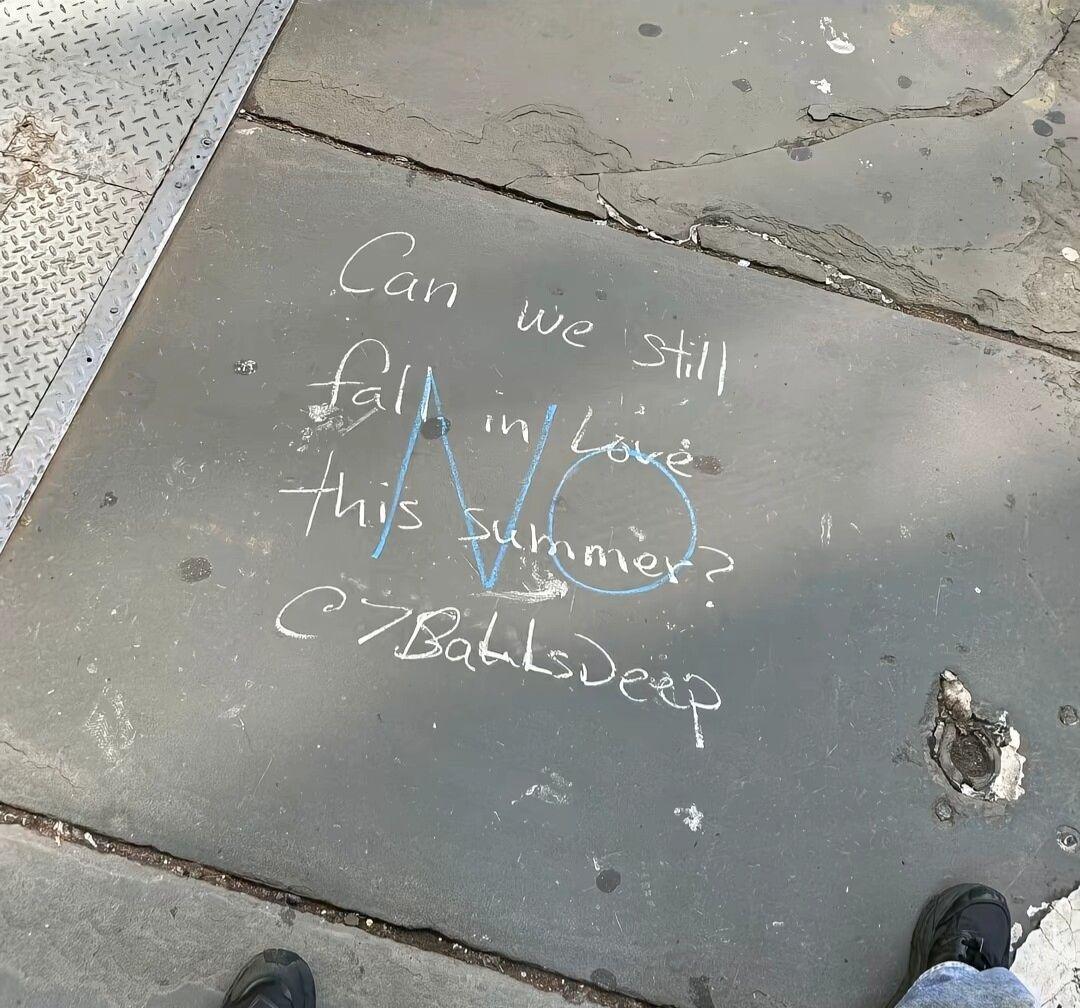 Can we still
fall in Love
this summer?
C>BallsDeep
NO